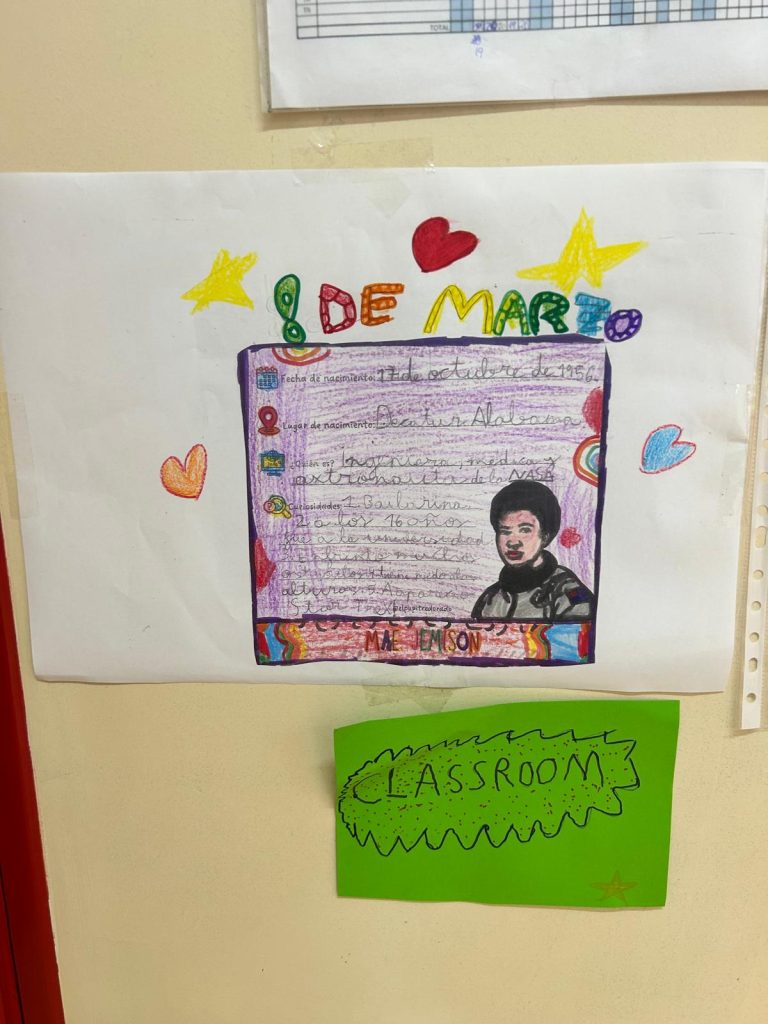 TOTAL
19
8 DE MARZO
Fecha de nacimiento: 17 de octubre de 1956
Lugar de nacimiento: Decatur Alabama
¿Quién es? Ingeniera, médica y
astronauta de la NASA
Curiosidades 1. Bailarina
2 a los 16 años
fue a la universidad
mucha
alturas
Star Trek
MAE JEMISON
CLASSROOM